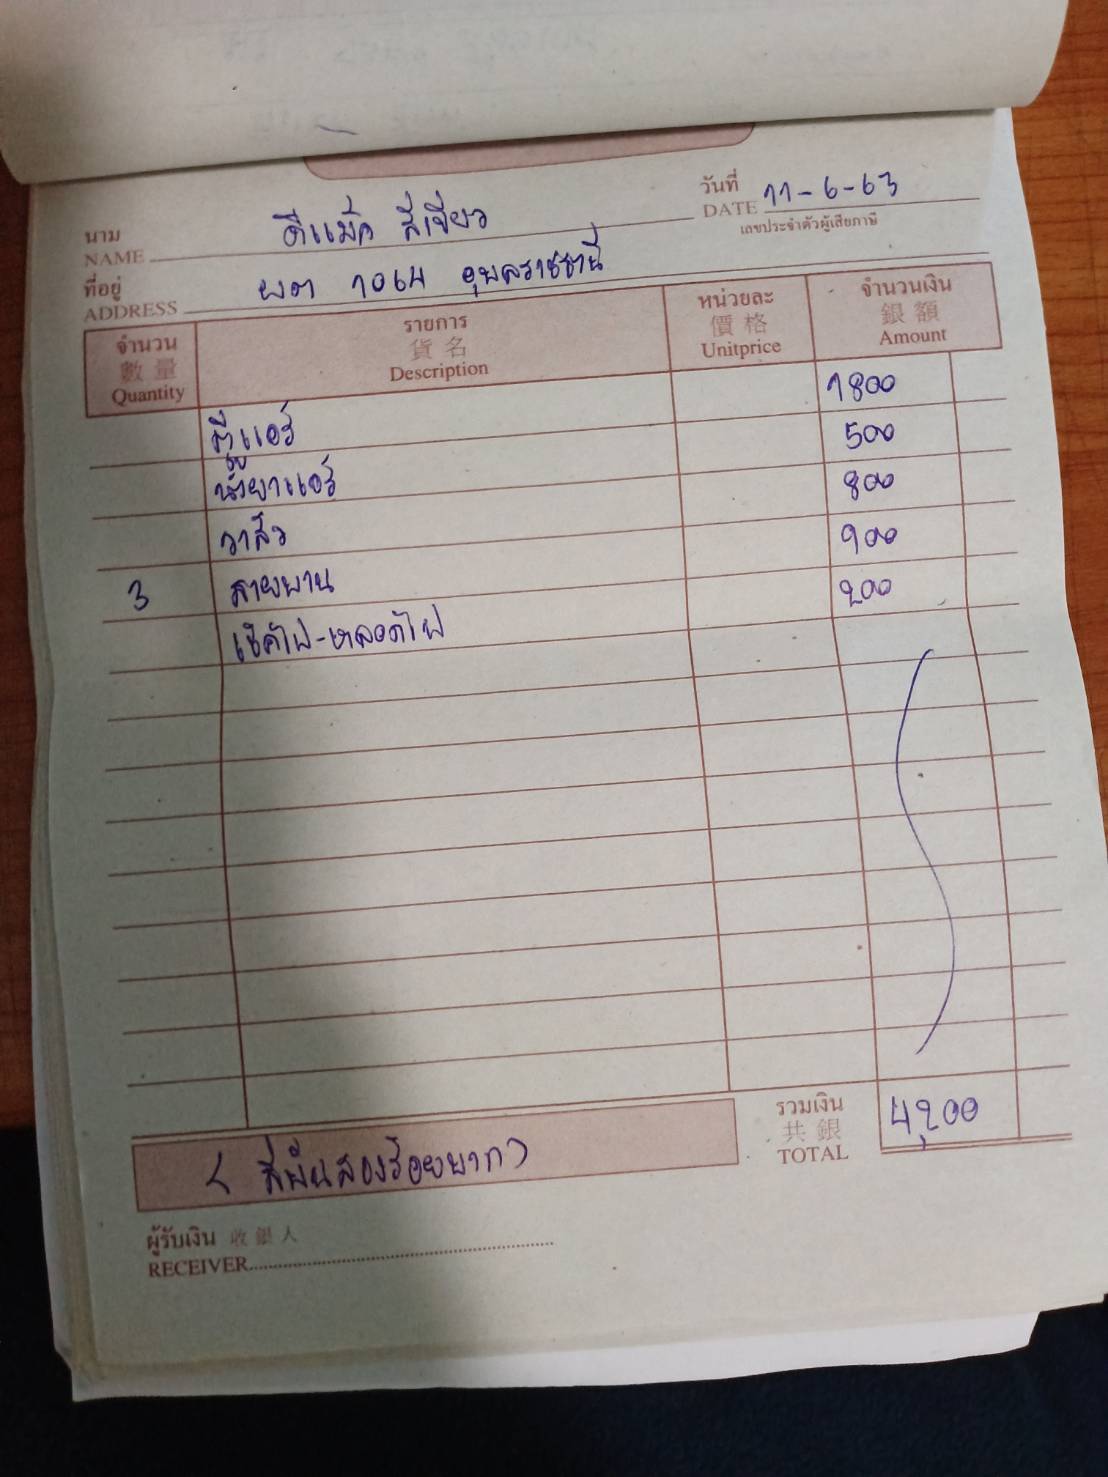 นาม ดีแม็ค สีเขียว วันที่ 11-6-63
NAME DATE
เลขประจำตัวผู้เสียภาษี
ที่อยู่ ผต 1064 อุบลราชธานี
ADDRESS
จำนวน รายการ หน่วยละ จำนวนเงิน
數量 貨名 價格 銀額
Quantity Description Unitprice Amount
ตู้แอร์ 1800
น้ำยาแอร์ 500
วาล์ว 800
3 สายพาน 900
เช็คไฟ-หลอดไฟ 200
รวมเงิน 4,200
共銀
TOTAL
( สี่พันสองร้อยบาท )
ผู้รับเงิน 收銀人
RECEIVER